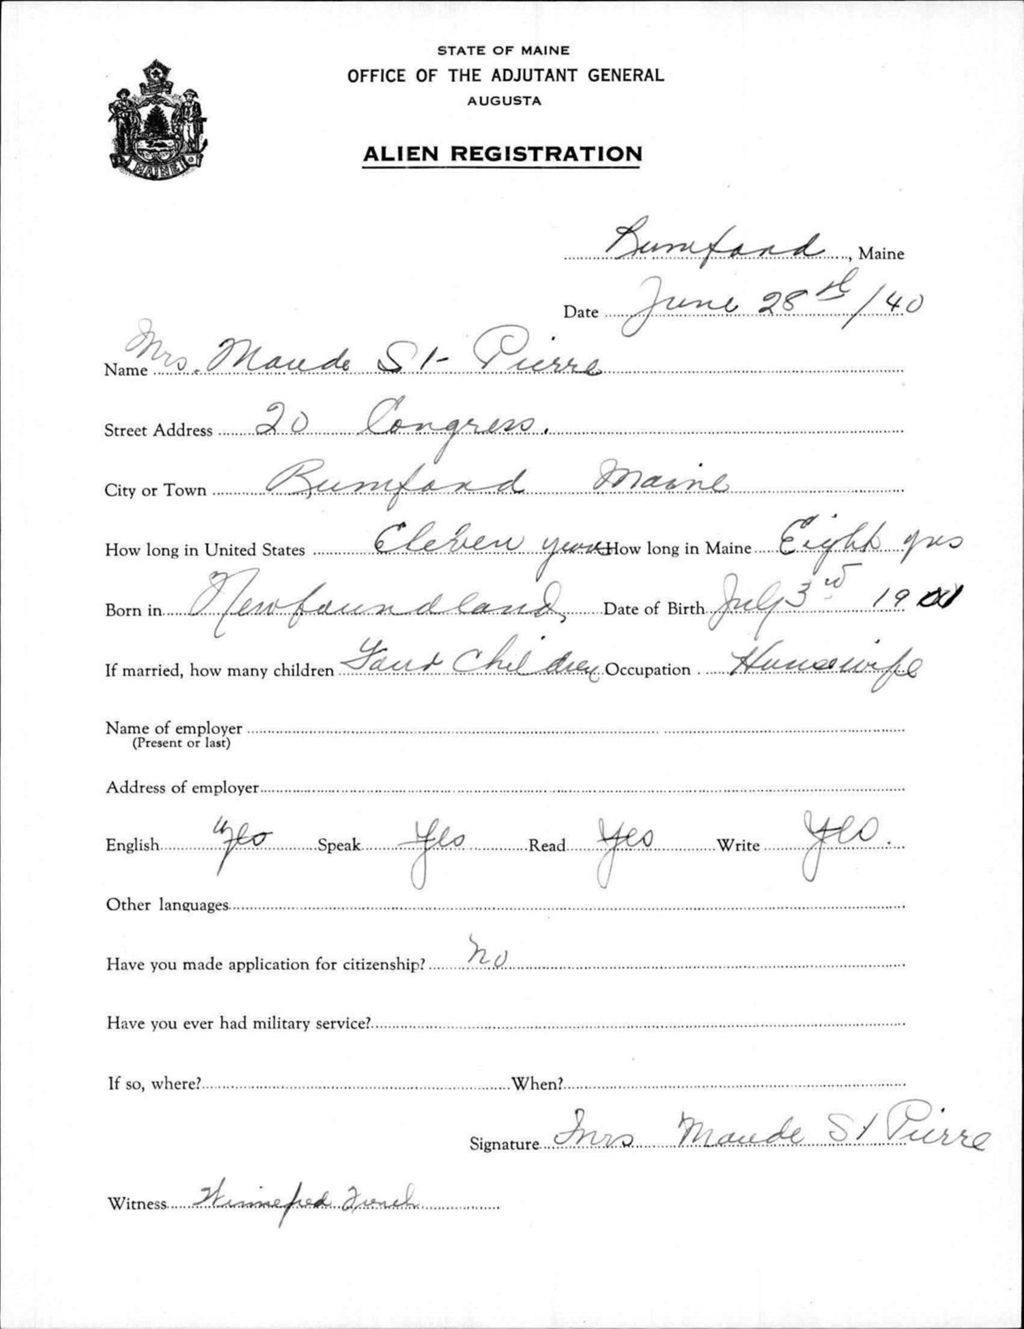 STATE OF MAINE
OFFICE OF THE ADJUTANT GENERAL
AUGUSTA
ALIEN REGISTRATION
MAINE
Rumford, Maine
Date June 28th/40
Name Mrs. Maude St- Pierre
Street Address 20 Congress.
City or Town Rumford Maine
How long in United States Eleven years How long in Maine Eight yrs
Born in Newfoundland, Date of Birth July 3rd 19
If married, how many children Four Children Occupation Housewife
Name of employer
(Present or last)
Address of employer
English Yes Speak Yes Read Yes Write Yes.
Other languages
Have you made application for citizenship? No
Have you ever had military service?
If so, where? When?
Signature Mrs Maude St Pierre
Witness Winnefred